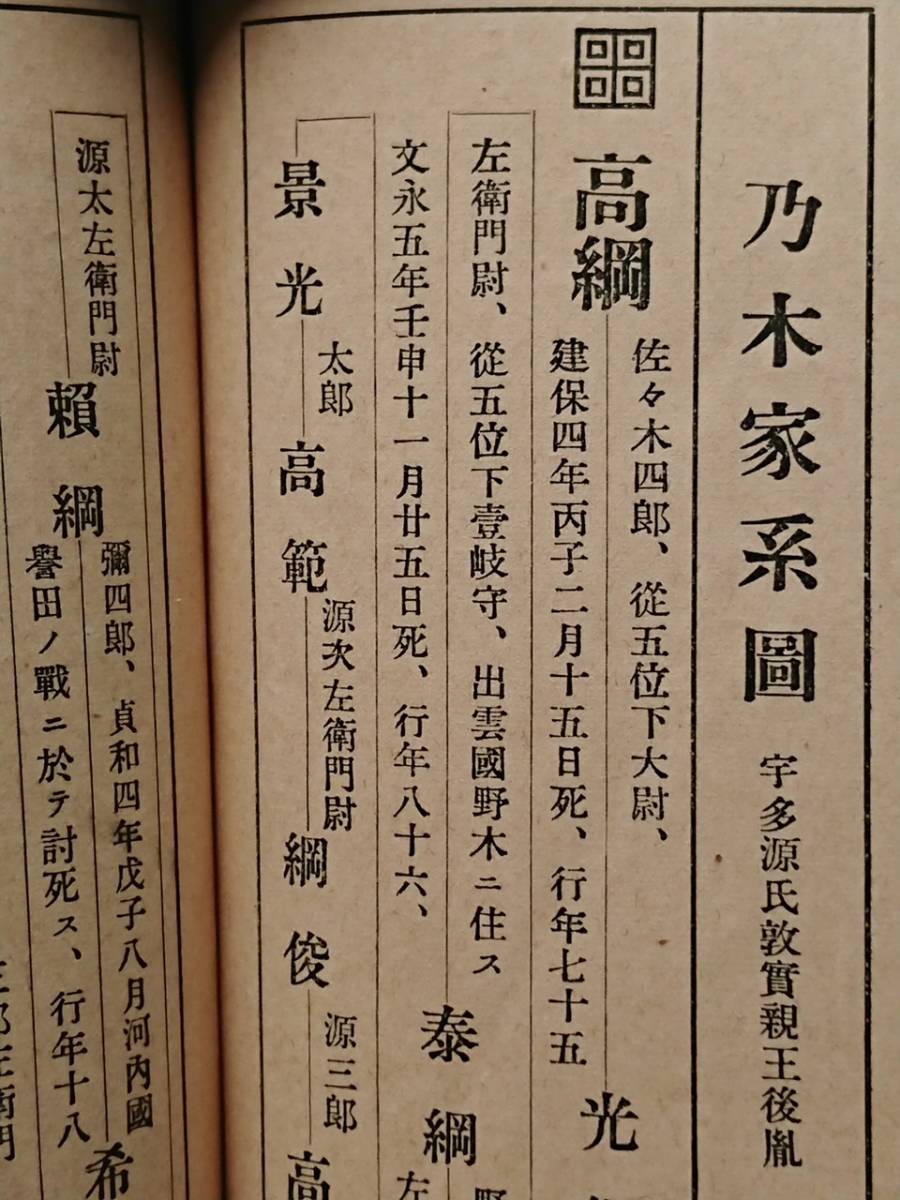 乃木家系圖 宇多源氏敦實親王後胤
高綱
佐々木四郎、從五位下大尉、
建保四年丙子二月十五日死、行年七十五
光
左衛門尉、從五位下壹岐守、出雲國野木ニ住ス
泰綱
文永五年壬申十一月廿五日死、行年八十六、
景光 太郎 高範 源次左衛門尉 綱俊 源三郎 高
源太左衛門尉 賴綱
彌四郎、貞和四年戊子八月河內國
譽田ノ戰ニ於テ討死ス、行年十八
希